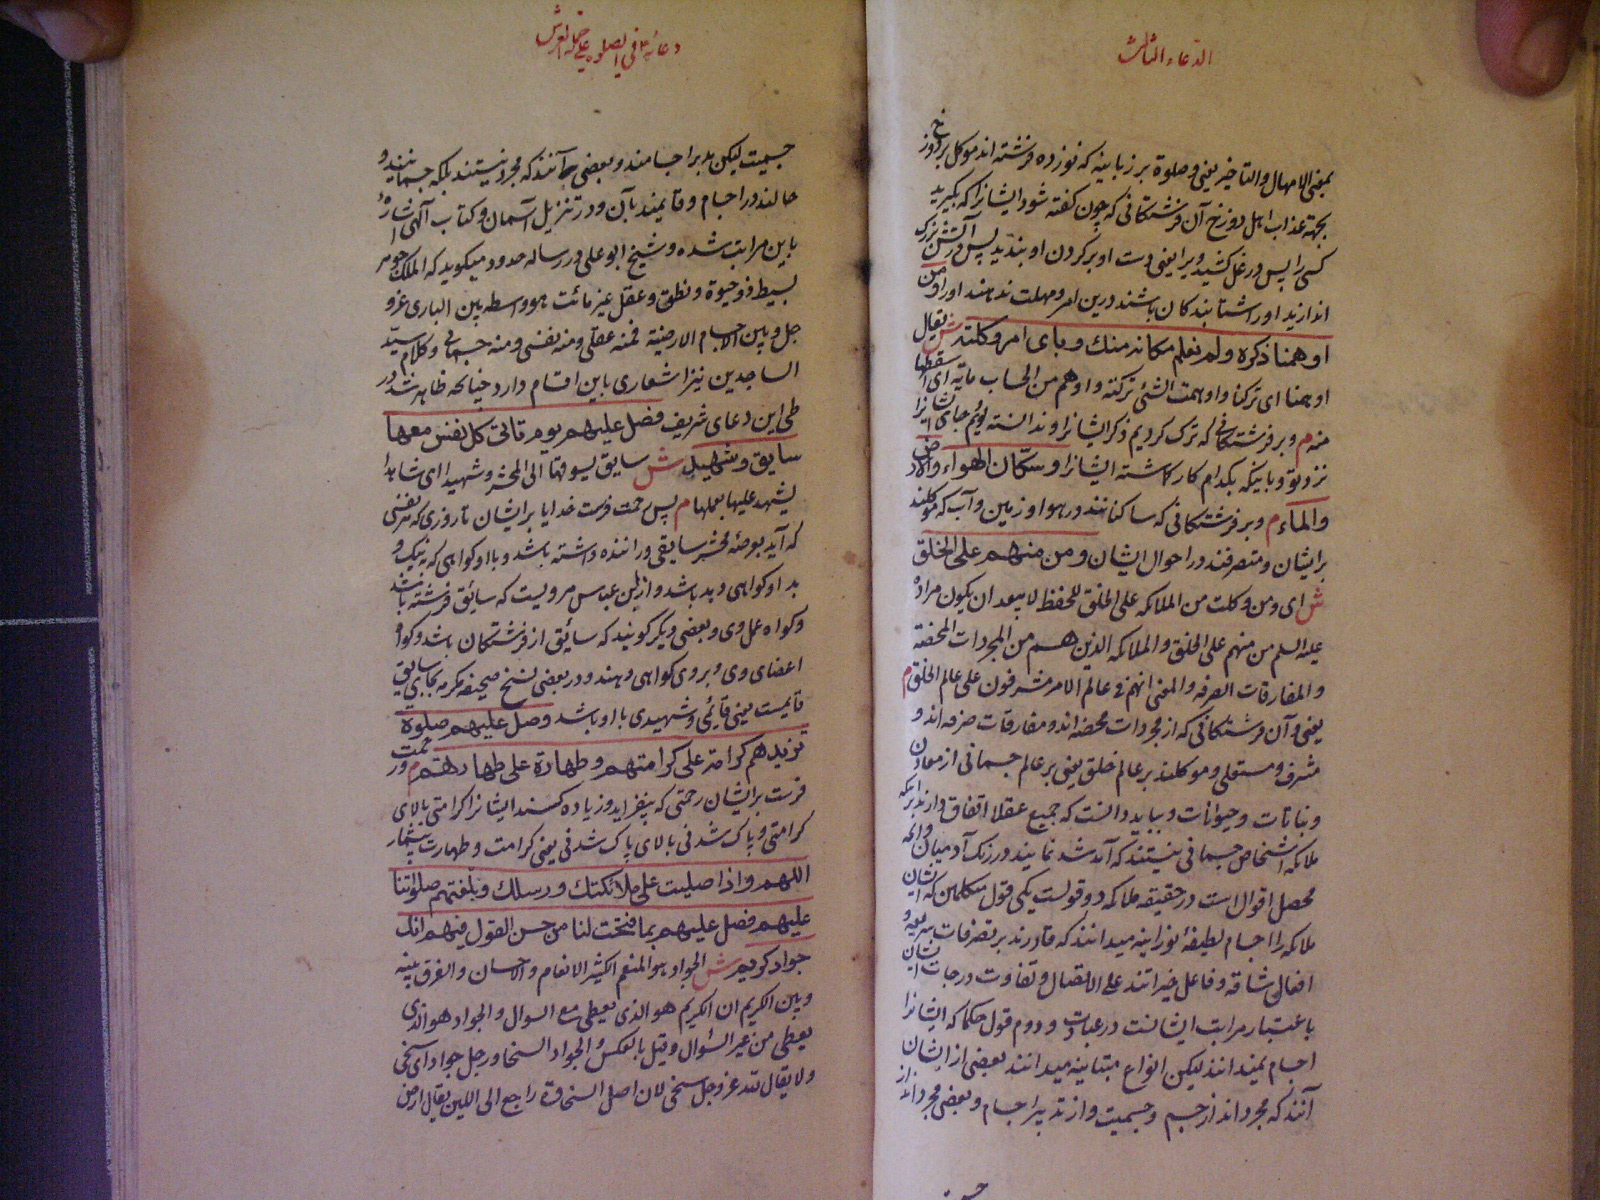 الدعاء الثالث
بمعنی الامهال والتاخیر یعنی وصلوة بر زبانیه که نوزده فرشته اند موکل بر دوزخ
بجهة عذاب اهل دوزخ آن فرشتکانی که چون کفته شود ایشانرا که بکیرید
کسی را پس در غل کشید ویرا یعنی دست او بر کردن او بندید پس در آتش بزرک
اندازید او را شتابند کان باشند درین امر و مهلت ندهند او را ومن
اوهمنا ذکره ولم نعلم مکانه منک وبای امر وکلته ش یقال
اوهمنا ای ترکنا واوهمت الشئ ترکته واوهم من الحساب مایة ای اسقطها
منه م وبر فرشتکانی که ترک کردیم ذکر ایشانرا وندانسته یوم جای ایشانرا
نزد تو وبانیکه بکدام کار کماشته ایشانرا وسکان الهواء والارض
والماء م وبر فرشتکانی که ساکنانند در هوا و زمین وآب که موکلند
بر ایشان ومتصرفند در احوال ایشان ومن منهم علی الخلق
ش ای ومن وکلت من الملائکه علی الخلق للحفظ لا یبعد ان یکون مراده
علیه السلم من منهم علی الخلق والملائکه الذین هم من المجردات المحضه
والمفارقات الصرفه والمعنی انهم فی عالم الامر مشرفون علی عالم الخلق م
یعنی وآن فرشتکانی که از مجردات محضه اند ومفارقات صرفه اند و
مشرف ومستعلی وموکلند بر عالم خلق یعنی بر عالم جسمانی از معادن
ونباتات وحیوانات وبباید دانست که جمیع عقلا اتفاق دارند بر انکه
ملائکه اشخاص جسمانی نیستند که آمد شد نمایند در رنک آدمیان وانچه
محصل اقوال است در حقیقه ملائکه دو قولست یکی قول متکلمین که ایشان
ملائکه را اجسام لطیفهٔ نورانیه میدانند که قادرند بر تصرفات سریعه و
افعال شاقه وفاعل خیراتند علی الاتصال وتفاوت درجات ایشان
باعتبار مراتب ایشانست در عبادت ودوم قول حکما که ایشانرا
اجسام نمیدانند لیکن انواع متباینه میدانند بعضی از ایشان
آنند که مجرداند از جسم وجسمیت واز تدبیر اجسام وبعضی مجرداند از
دعائه فی الصلوة علی حملة العرش
جسمیت لیکن مدبر اجسامند وبعضی آنند که مجرد نیستند بلکه جسمانیند و
حالند در اجسام وقایمند بآن ودر تنزیل آسمان وکتاب آلهی اشارهٔ
باین مراتب شده وشیخ ابو علی در رساله حدود میکوید که الملک جوهر
بسیط ذو حیوة ونطق وعقل غیر مائت هو واسطه بین الباری عز و
جل وبین الاجسام الارضیة فمنه عقلی ومنه نفسی ومنه جسمانی وکلام سید
الساجدین نیز اشعاری باین اقسام دارد چنانچه ظاهر شد در
طی این دعای شریف فصل علیهم یوم تاتی کل نفس معها
سایق وشهید ش سایق یسوقها الی المحشر وشهید ای شاهد
یشهد علیها بعملها م پس رحمت فرست خدایا بر ایشان تا روزی که هر نفسی
که آید بعرصهٔ محشر سایقی وراننده داشته باشد وبا او کواهی که به نیک و
بد او کواهی دهد باشد واز ابن عباس مرویست که سائق فرشته باشد
وکواه عمل وی وبعضی دیکر کویند که سائق از فرشتکان باشد وکواه
اعضای وی وبر وی کواهی دهند ودر بعضی نسخ صحیفه مکرمه بجای سایق
قایمست یعنی قائمی وشهیدی با او باشد وصل علیهم صلوة
تزیدهم کرامة علی کرامتهم وطهارة علی طهارتهم م ورحمت
فرست بر ایشان رحمتی که بیفزاید وزیاده کند ایشانرا کرامتی بالای
کرامتی وپاک شدنی بالای پاک شدنی یعنی کرامت وطهارت بیشمار
اللهم واذا صلیت علی ملائکتک ورسلک وبلغتهم صلوتنا
علیهم فصل علیهم بما فتحت لنا من حسن القول فیهم انک
جواد کریم ش الجواد هو المنعم الکثیر الانعام والاحسان والفرق بینه
وبین الکریم ان الکریم هو الذی یعطی مع السوال والجواد هو الذی
یعطی من غیر السؤال وقیل بالعکس والجواد السخا ورجل جواد ای سخی
ولا یقال لله عز وجل سخی لان اصل السخاوة راجع الی اللین یقال ارض